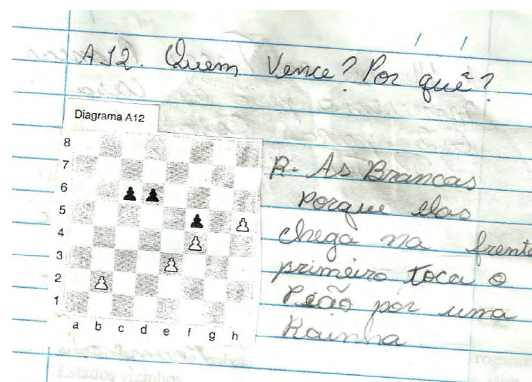 A.12. Quem Vence? Por quê?
Diagrama A12
8
7
6
5
4
3
2
1
a b c d e f g h
R- As Brancas
porque elas
chega na frente
primeiro toca o
Peão por uma
Rainha.